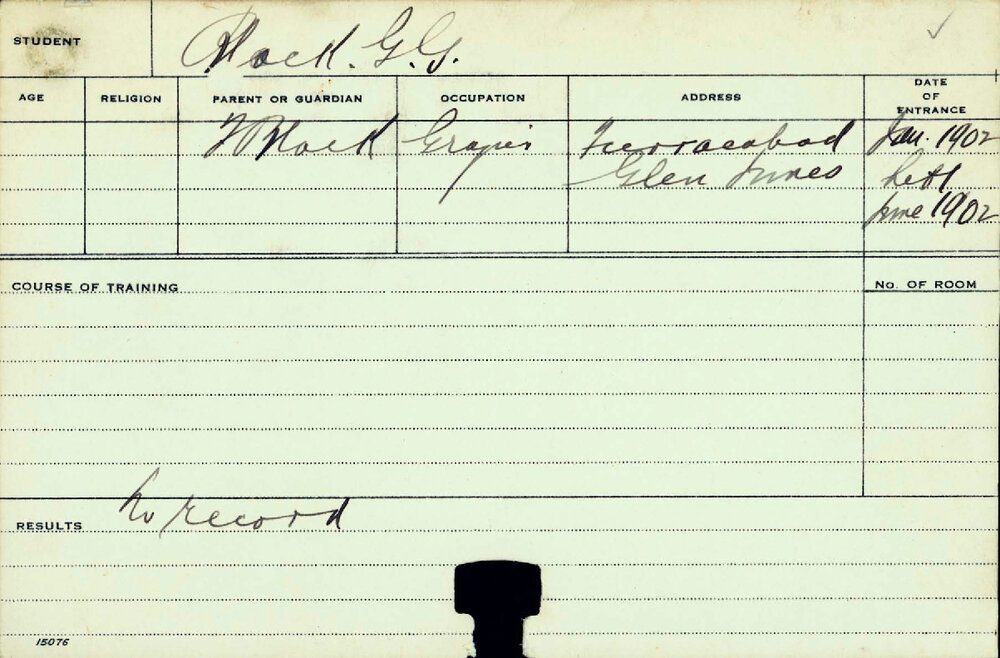 STUDENT Black. G.G.
AGE RELIGION PARENT OR GUARDIAN OCCUPATION ADDRESS DATE OF ENTRANCE
Black Grazier Terracabad Jan. 1902
Glen Innes Left
June 1902
COURSE OF TRAINING No. OF ROOM
RESULTS No record
15076